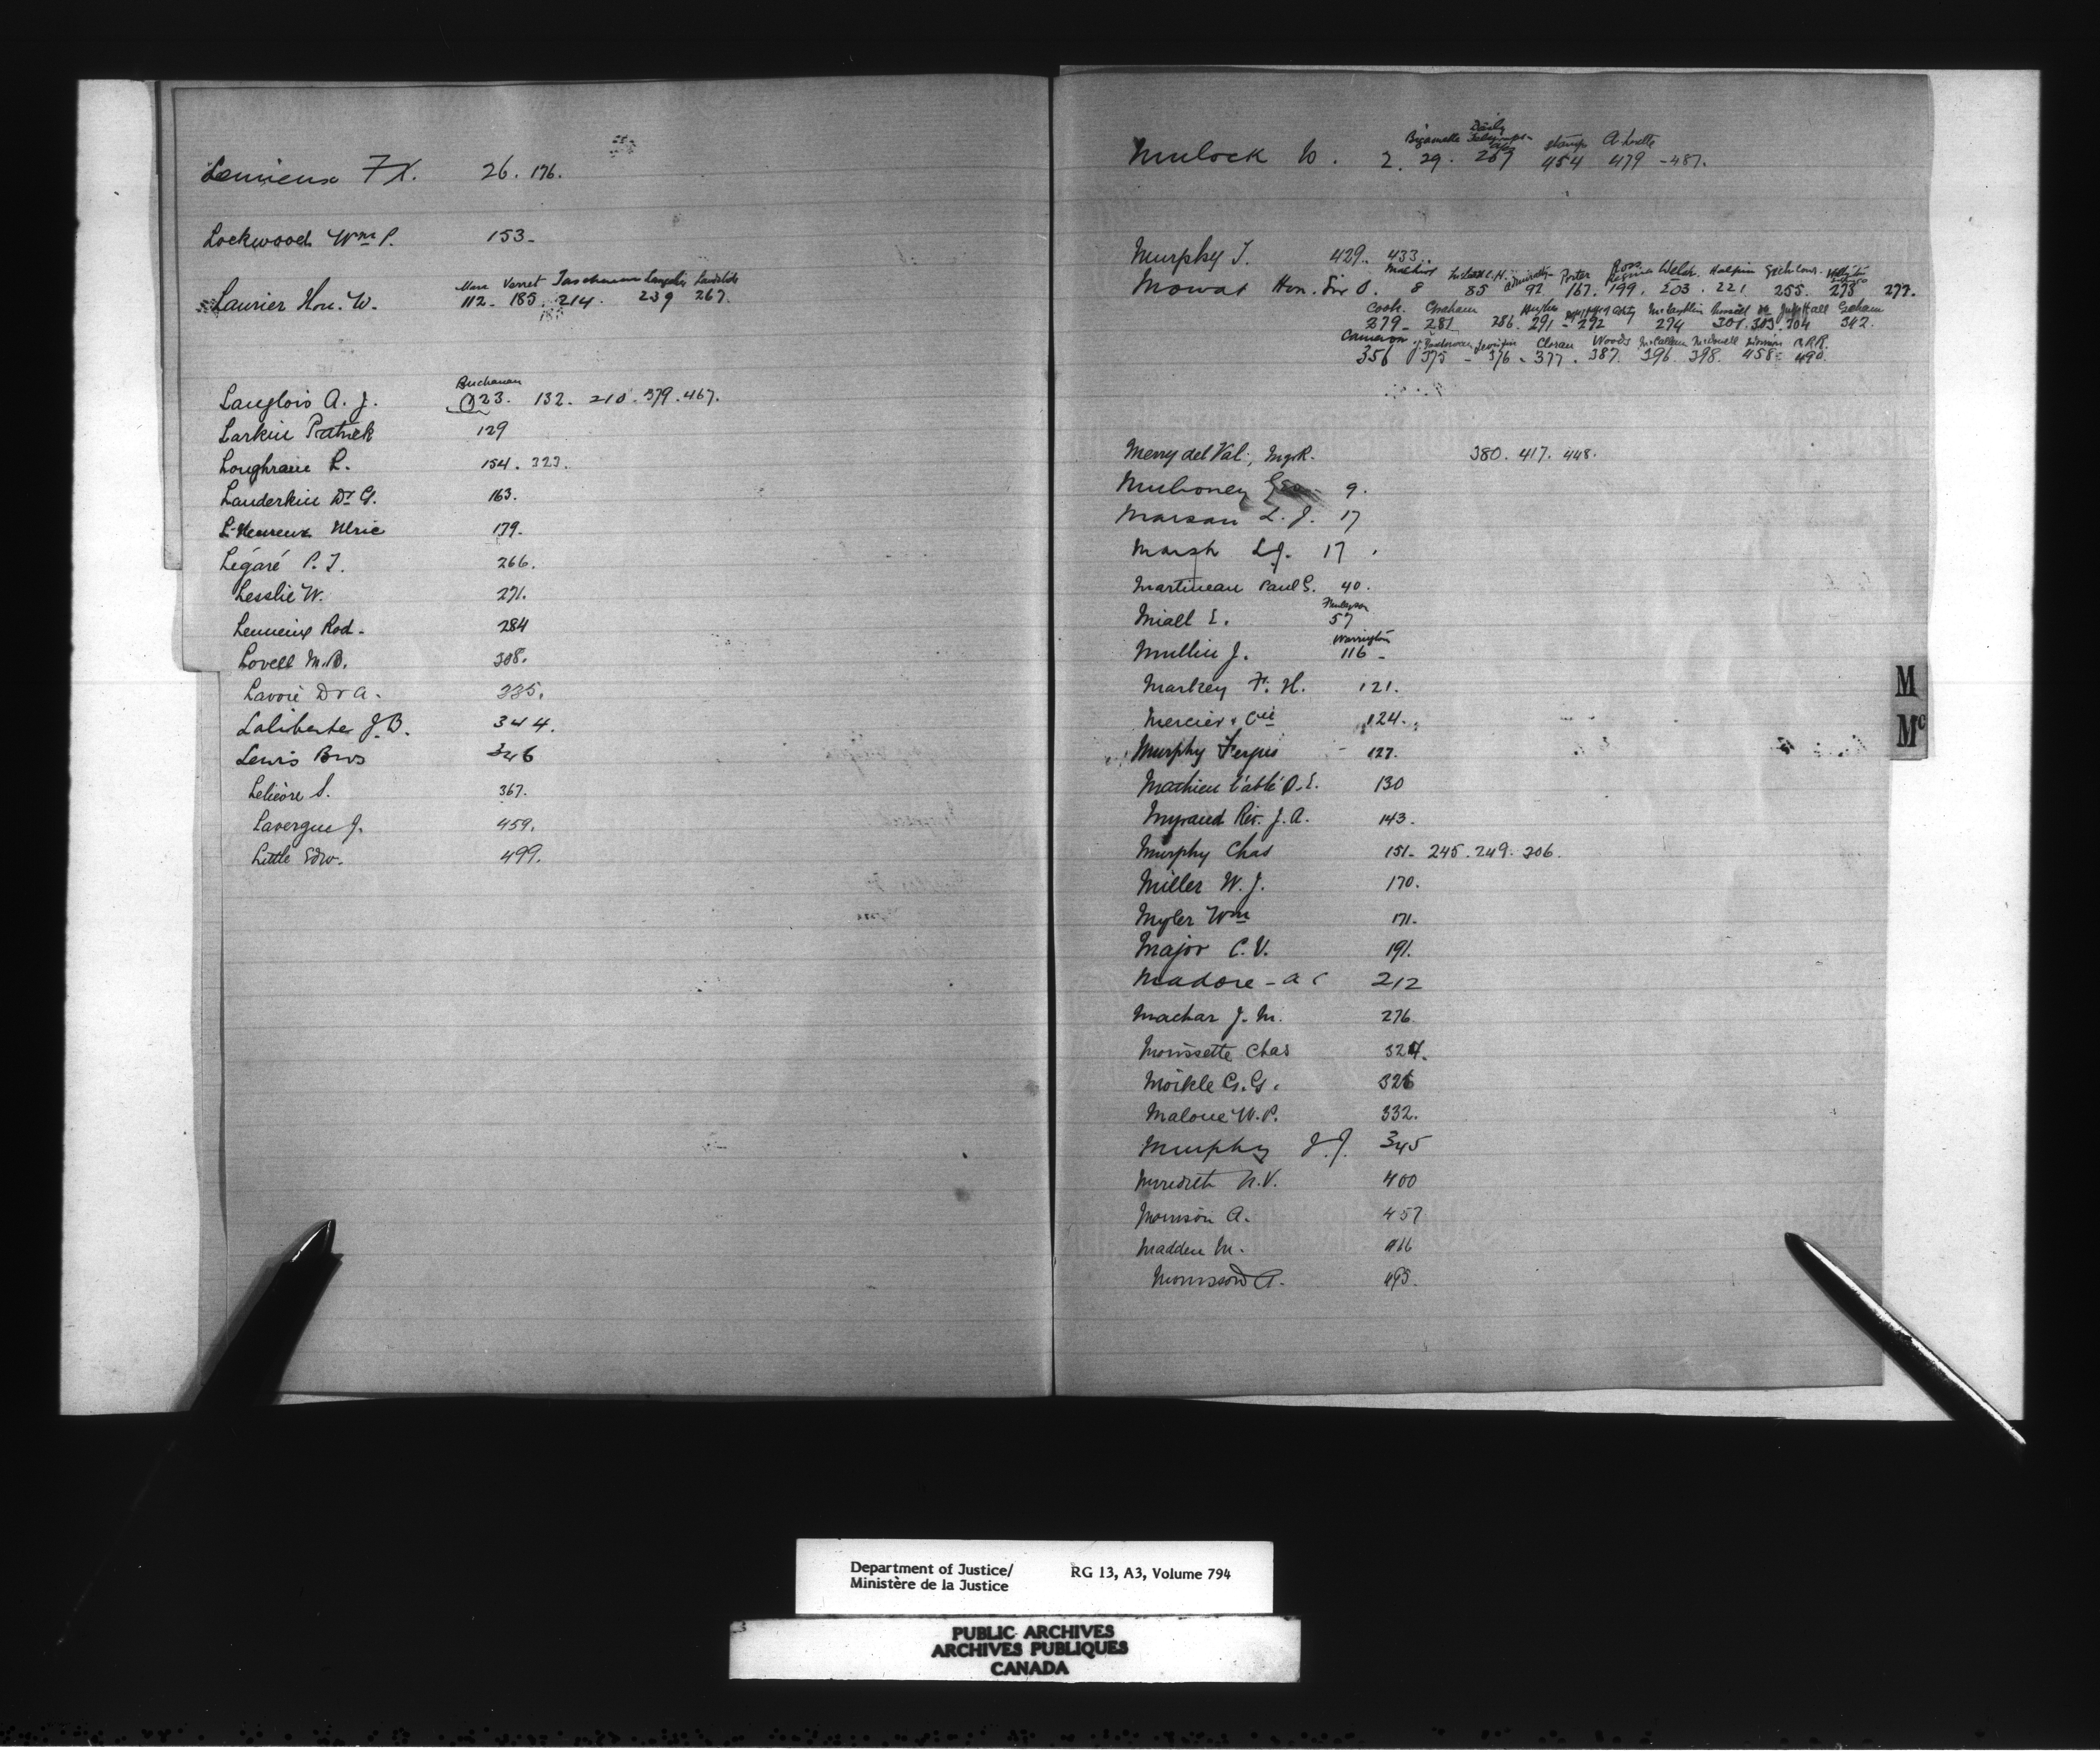 Lemieux F.X. 26. 176.
Lockwood Wm P. 153-
Verret Taschereau Langelier
Laurier Hon. W. 112- 185. 214. 239 267.
Buchanan
Langlois A. J. 023. 132. 210. 379. 467.
Larkin Patrick 129
Loughran L. 154. 323.
Landerkin Dr G. 163.
L'Heureux Ulric 179.
Légaré P. T. 266.
Lesslie W. 271.
Lemieux Rod- 284
Lovell M.B. 308.
Lavoie Dr A. 335.
Laliberte J.B. 344.
Lewis Bros 346
Lelièvre S. 367.
Lavergne J. 459.
Little Edw. 499.
Daily
Bizamette stamps
Mulock W. 2. 29. 267 454 479 -487.
Murphy T. 429. 433.
Admiralty Porter Ross Regina Welsh. Halpin
Mowat Hon. Sir O. 8 85 92 167. 199. 203. 221 255. 275 277.
Cook. Graham Hughes McLaughlin Russell Hall Graham
279- 281 286. 291- 292 294 301. 303. 304 342.
Cameron Cloran Woods McCallum McDowell
356 375 - 376 - 377. 387. 396. 398. 458- 490.
Merry del Val, Mgr R. 380. 417. 448.
Mulroney Geo 9.
Marsan L. J. 17
Marsh L.J. 17.
Martineau Paul G. 40.
Finlayson
Miall E. 57
Warrington
Mullin J. 116-
Markey F. H. 121.
Mercier & Cie 124.
Murphy Fergus 127.
Mathieu l'abbé O.E. 130
Myrand Rev. J. A. 143.
Murphy Chas 151- 245. 249. 306.
Miller W. J. 170.
Myler Wm 171.
Major C. V. 191.
Madore - A C 212
Machar J. M. 276
Morissette Chas 324.
Moikle G. G. 326
Malone W. P. 332.
Murphy J. J. 345
Meredith H.V. 400
Morrison A. 457
Madden M.
Morrison A. 495.
M
Mc
Department of Justice/ RG 13, A3, Volume 794
Ministère de la Justice
PUBLIC ARCHIVES
ARCHIVES PUBLIQUES
CANADA